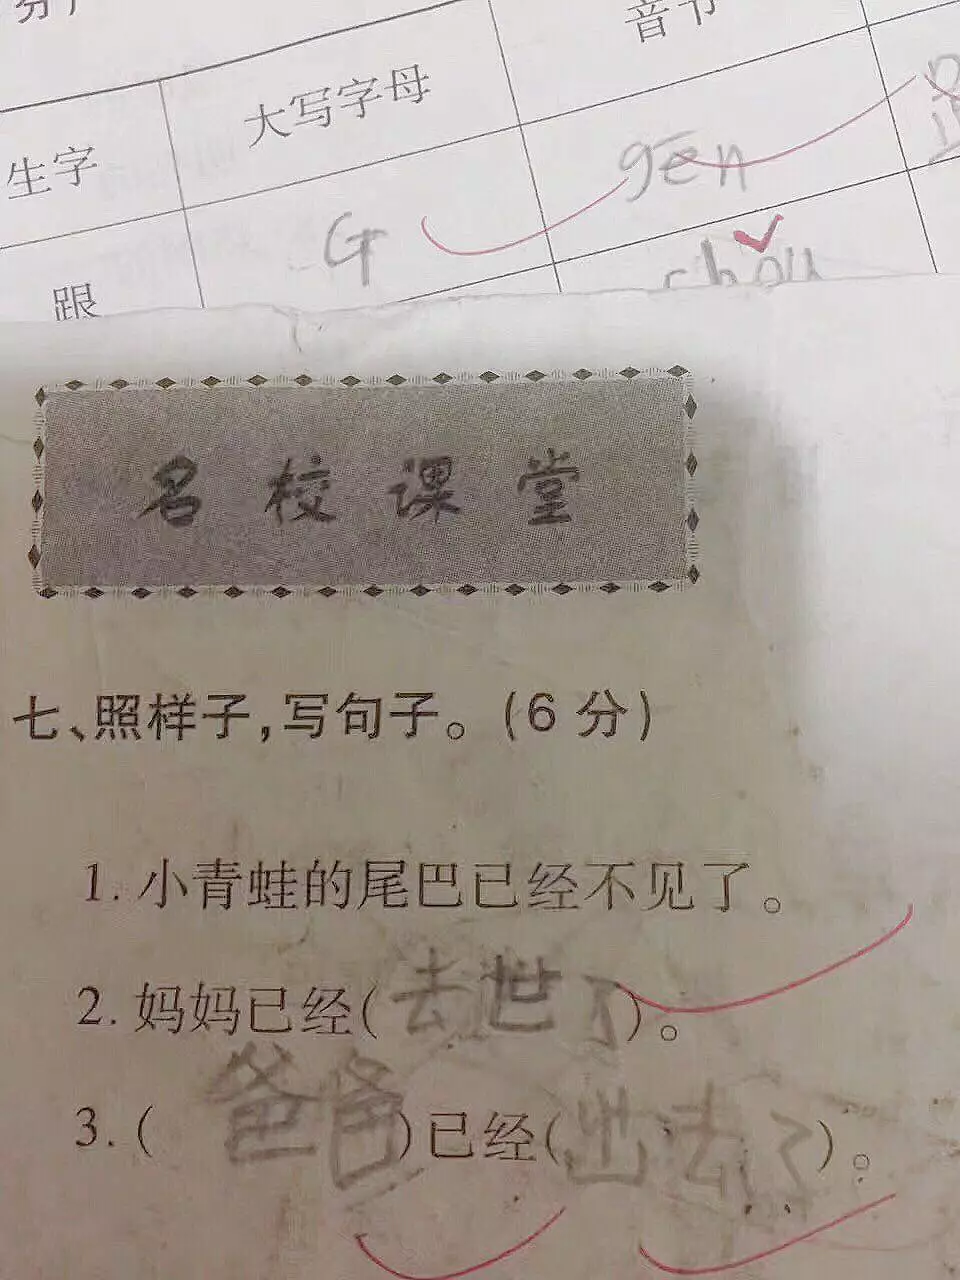 分）
大写字母 音节
生字
G gēn
跟 chou
名校课堂
七、照样子,写句子。(6 分)
1. 小青蛙的尾巴已经不见了。
2. 妈妈已经(去世了)。
3. (爸爸)已经(出去了)。